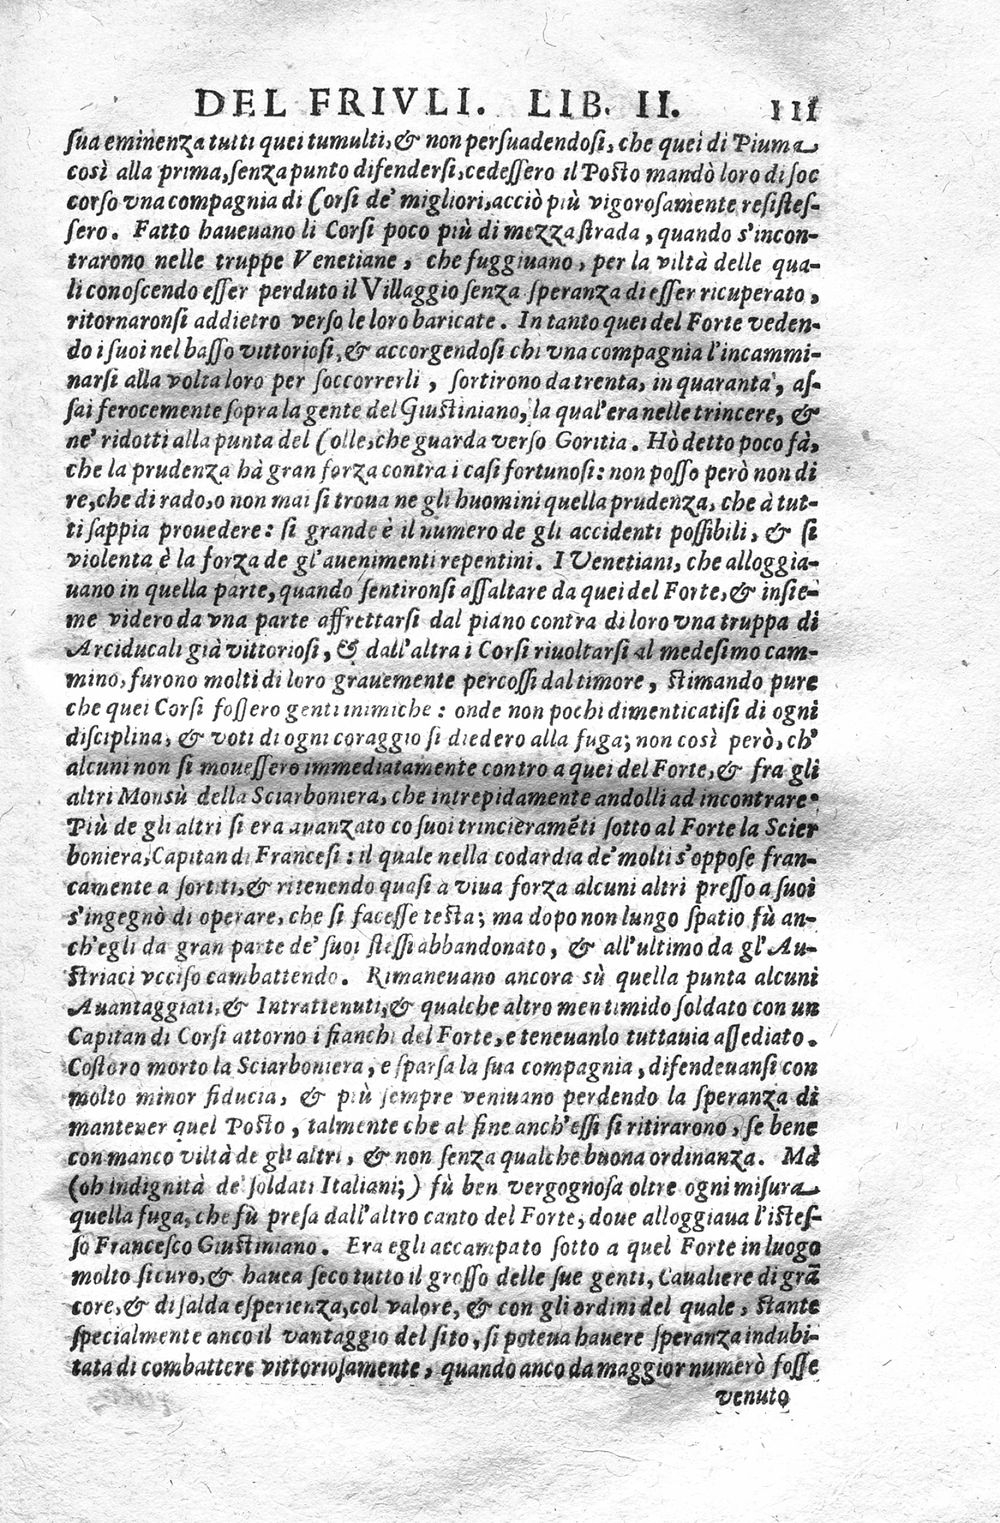 DEL FRIVLI. LIB. II. 111
sua eminenza tutti quei tumulti, & non persuadendosi, che quei di Piuma
così alla prima, senza punto difendersi, cedessero il Posto mandò loro di soc
corso vna compagnia di Corsi de' migliori, acciò più vigorosamente resistes-
sero. Fatto haueuano li Corsi poco più di mezza strada, quando s'incon-
trarono nelle truppe Venetiane, che fuggiuano, per la viltà delle qua-
li conoscendo esser perduto il Villaggio senza speranza di esser ricuperato,
ritornaronsi addietro verso le loro baricate. In tanto quei del Forte veden-
do i suoi nel basso vittoriosi, & accorgendosi chi vna compagnia l'incammi-
narsi alla volta loro per soccorrerli, sortirono da trenta, in quaranta, as-
sai ferocemente sopra la gente del Giustiniano, la qual'era nelle trincere, &
ne' ridotti alla punta del Colle, che guarda verso Goritia. Hò detto poco fà,
che la prudenza hà gran forza contra i casi fortunosi: non posso però non di
re, che di rado, o non mai si troua ne gli huomini quella prudenza, che à tut-
ti sappia prouedere: si grande è il numero de gli accidenti possibili, & si
violenta è la forza de gl'auenimenti repentini. I Venetiani, che alloggia-
uano in quella parte, quando sentironsi assaltare da quei del Forte, & insie-
me videro da vna parte affrettarsi dal piano contra di loro vna truppa di
Arciducali già vittoriosi, & dall'altra i Corsi riuoltarsi al medesimo cam-
mino, furono molti di loro grauemente percossi dal timore, stimando pure
che quei Corsi fossero genti inimiche: onde non pochi dimenticatisi di ogni
disciplina, & voti di ogni coraggio si diedero alla fuga; non così però, ch'
alcuni non si mouessero immediatamente contro a quei del Forte, & fra gli
altri Monsù della Sciarboniera, che intrepidamente andolli ad incontrare.
Più de gli altri si era auanzato co suoi trincieramẽti sotto al Forte la Scier
boniera, Capitan di Francesi: il quale nella codardia de' molti s'oppose fran-
camente a sortiti, & ritenendo quasi a viua forza alcuni altri presso a suoi
s'ingegnò di operare, che si facesse testa; ma dopo non lungo spatio fù an-
ch'egli da gran parte de' suoi stessi abbandonato, & all'ultimo da gl'Au-
striaci vcciso cambattendo. Rimaneuano ancora sù quella punta alcuni
Auantaggiati, & Intrattenuti, & qualche altro men timido soldato con un
Capitan di Corsi attorno i fianchi del Forte, e teneuanlo tuttauia assediato.
Costoro morto la Sciarboniera, e sparsa la sua compagnia, difendeuansi con
molto minor fiducia, & più sempre veniuano perdendo la speranza di
mantener quel Posto, talmente che al fine anch'essi si ritirarono, se bene
con manco viltà de gli altri, & non senza qualche buona ordinanza. Mà
(oh indignità de' soldati Italiani;) fù ben vergognosa oltre ogni misura
quella fuga, che fù presa dall'altro canto del Forte, doue alloggiaua l'istes-
so Francesco Giustiniano. Era egli accampato sotto a quel Forte in luogo
molto sicuro, & hauea seco tutto il grosso delle sue genti, Caualiere di grã
core, & di salda esperienza, col valore, & con gli ordini del quale, stante
specialmente anco il vantaggio del sito, si poteua hauere speranza indubi-
tata di combattere vittoriosamente, quando anco da maggior numerò fosse
venuto